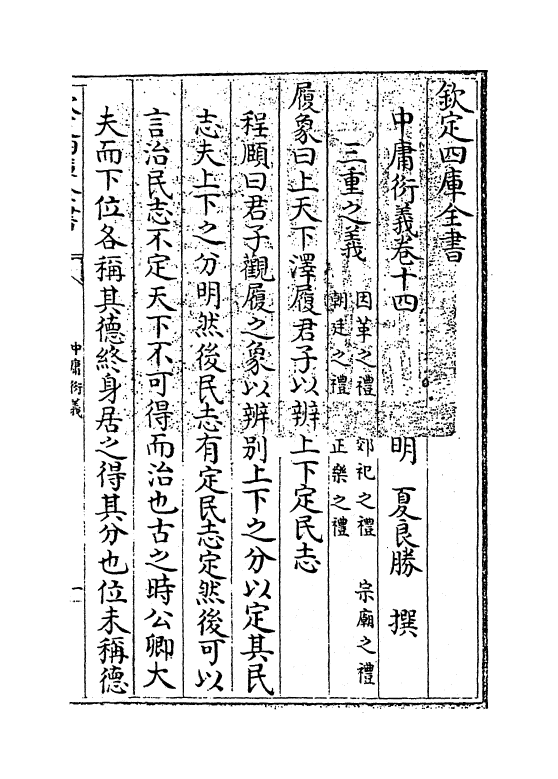 欽定四庫全書
中庸衍義卷十四　明　夏良勝　撰
三重之義　因革之禮　郊祀之禮　宗廟之禮
朝廷之禮　正樂之禮
履象曰上天下澤履君子以辨上下定民志
程頤曰君子觀履之象以辨別上下之分以定其民
志夫上下之分明然後民志有定民志定然後可以
言治民志不定天下不可得而治也古之時公卿大
夫而下位各稱其德終身居之得其分也位未稱德
中庸衍義